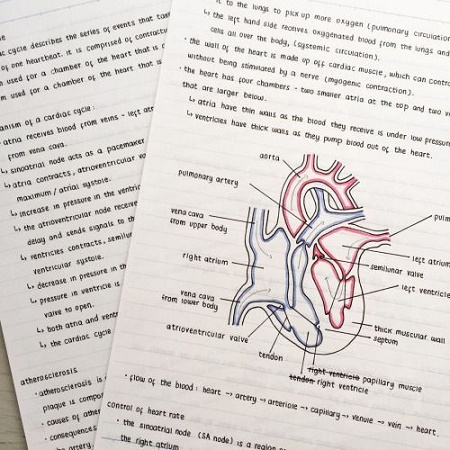 ac cycle describes the series of events that take
of one heartbeat. it is comprised of contractu
m used for a chamber of the heart that is
m used for a chamber of the heart that is
anism of a cardiac cycle:
atria receives blood from veins - left atr
from vena cava.
↳ sinoatrial node acts as a pacemaker
↳ atria contracts, atrioventricular va
maximum / atrial systole.
↳ increase in pressure in the ventric
↳ the atrioventricular node receive
delay and sends signals to th
↳ ventricles contracts, semilun
ventricular systole.
↳ decrease in pressure in th
↳ pressure in ventricle is
valve to open.
↳ both atria and ventr
↳ the cardiac cycle
atherosclerosis
• atherosclerosis is
plaque is compo
• causes of athe
• consequences
the artery.
it to the lungs to pick up more oxygen (pulmonary circulation
↳ the left hand side receives oxygenated blood from the lungs and
cells all over the body, (systemic circulation).
• the wall of the heart is made up off cardiac muscle, which can contra
without being stimulated by a nerve (myogenic contraction).
• the heart has four chambers - two smaller atria at the top and two ve
that are larger below.
↳ atria have thin walls as the blood they receive is under low pressure
↳ ventricles have thick walls as they pump blood out of the heart.
aorta
pulmonary artery
pulm
vena cava
from upper body
left atrium
semilunar valve
right atrium
left ventricle
vena cava
from lower body
thick muscular wall
septum
atrioventricular valve
tendon
right ventricle papillary muscle
tendon right ventricle
• flow of the blood: heart → artery → arteriole → capillary → venue → vein → heart.
control of heart rate
• the sinoatrial node (SA node) is a region o
the right atrium